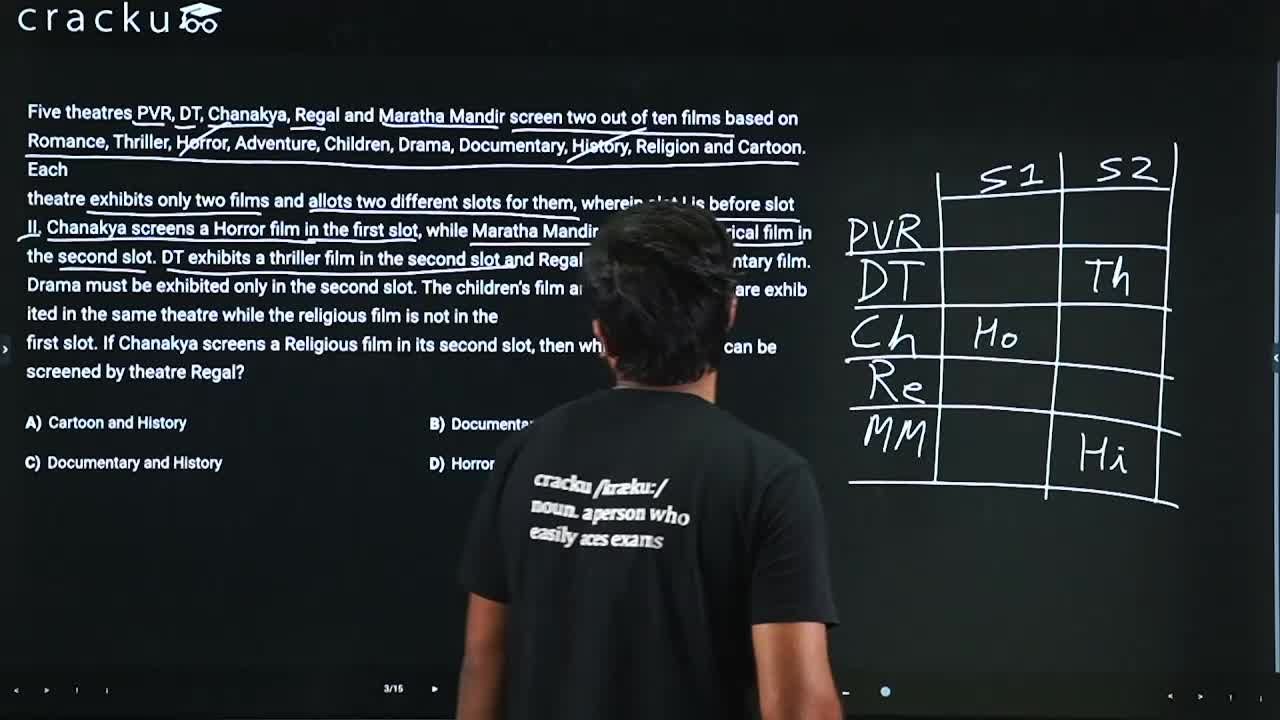 cracku
Five theatres PVR, DT, Chanakya, Regal and Maratha Mandir screen two out of ten films based on
Romance, Thriller, Horror, Adventure, Children, Drama, Documentary, History, Religion and Cartoon.
Each
theatre exhibits only two films and allots two different slots for them, wherein slot I is before slot
II. Chanakya screens a Horror film in the first slot, while Maratha Mandir rical film in
the second slot. DT exhibits a thriller film in the second slot and Regal ntary film.
Drama must be exhibited only in the second slot. The children's film are exhib
ited in the same theatre while the religious film is not in the
first slot. If Chanakya screens a Religious film in its second slot, then can be
screened by theatre Regal?
A) Cartoon and History
B) Documenta
C) Documentary and History
D) Horror
S1 S2
PVR
DT Th
Ch Ho
Re
MM Hi
cracku /kræku:/
noun. a person who
easily aces exams
3/15